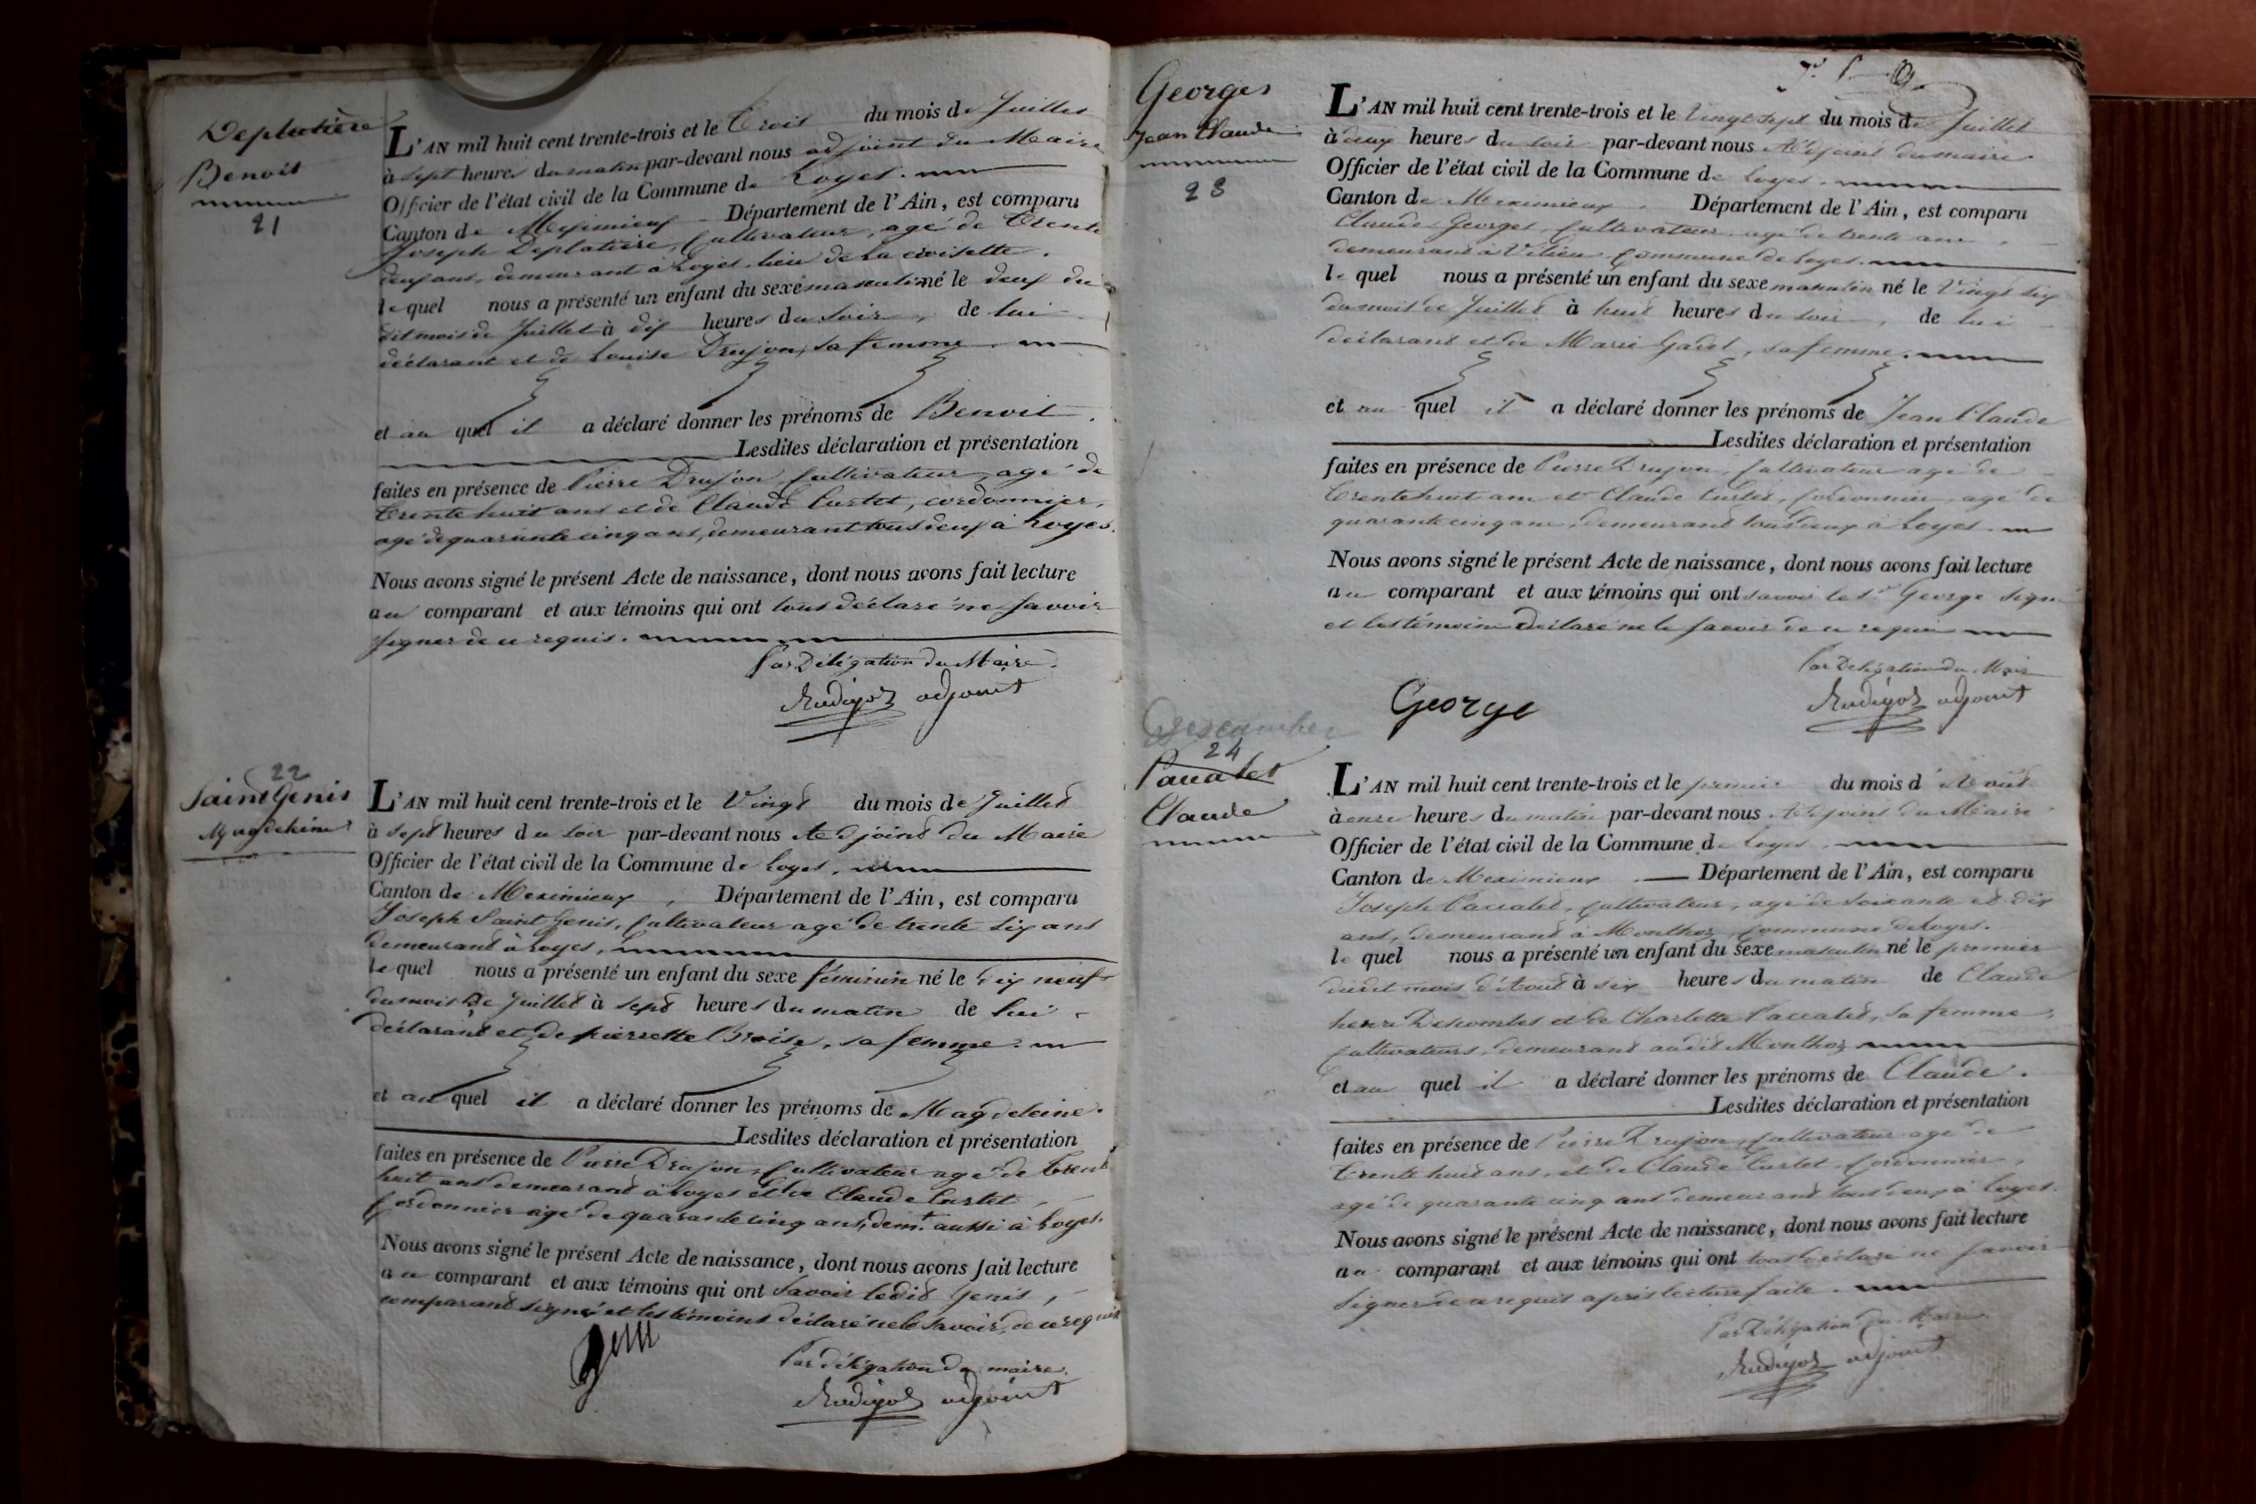 Deplatière
Benoit
21
L'AN mil huit cent trente-trois et le Trois du mois de Juillet
à sept heures du matin par-devant nous adjoint du Maire
Officier de l'état civil de la Commune de Loyes.
Canton de Meximieux Département de l'Ain, est comparu
Joseph Deplatière, Cultivateur, agé de Trente
deux ans, demeurant à Loyes, lieu de La croisette.
lequel nous a présenté un enfant du sexe masculin né le deux du
dit mois de Juillet à dix heures du soir, de lui
déclarant et de Louise Drujon, sa femme
et au quel il a déclaré donner les prénoms de Benoit.
Lesdites déclaration et présentation
faites en présence de Pierre Drujon, Cultivateur, agé de
Trente huit ans et de Claude Curtet, cordonnier,
agé de quarante cinq ans, demeurant tous deux à Loyes.
Nous avons signé le présent Acte de naissance, dont nous avons fait lecture
au comparant et aux témoins qui ont tous déclaré ne savoir
signer de ce requis.
Par Délégation du Maire.
Rudigoz adjoint
22
Saint Genis
Magdeleine
L'AN mil huit cent trente-trois et le Vingt du mois de Juillet
à sept heures du soir par-devant nous Adjoint du Maire
Officier de l'état civil de la Commune de Loyes.
Canton de Meximieux, Département de l'Ain, est comparu
Joseph Saint Genis, Cultivateur agé de trente six ans
demeurant à Loyes,
lequel nous a présenté un enfant du sexe féminin né le dix neuf
du mois de Juillet à sept heures du matin de lui
déclarant et de pierrette Broise, sa femme.
et au quel il a déclaré donner les prénoms de Magdeleine.
Lesdites déclaration et présentation
faites en présence de Pierre Drujon, Cultivateur agé de trente
huit ans demeurant à Loyes et de Claude Curtet,
Cordonnier agé de quarante cinq ans, demt. aussi à Loyes.
Nous avons signé le présent Acte de naissance, dont nous avons fait lecture
au comparant et aux témoins qui ont Savoir ledit Genis,
comparant signé et les témoins déclaré ne le savoir, de ce requis
Par délégation du maire.
Rudigoz adjoint
Georges
Jean Claude
23
L'AN mil huit cent trente-trois et le Vingt sept du mois de Juillet
à deux heures du soir par-devant nous Adjoint du maire
Officier de l'état civil de la Commune de Loyes.
Canton de Meximieux. Département de l'Ain, est comparu
Claude Georges, Cultivateur agé de trente ans,
demeurant à Vilieu, Commune de Loyes.
lequel nous a présenté un enfant du sexe masculin né le Vingt six
du mois de Juillet à huit heures du soir, de lui
déclarant et de Marie Gadet, sa femme.
et au quel il a déclaré donner les prénoms de Jean Claude
Lesdites déclaration et présentation
faites en présence de Pierre Drujon, Cultivateur agé de
Trente huit ans et Claude Curtet, Cordonnier, agé de
quarante cinq ans, demeurant tous deux à Loyes.
Nous avons signé le présent Acte de naissance, dont nous avons fait lecture
au comparant et aux témoins qui ont savoir le Sr George signé
et les témoins déclaré ne le savoir de ce requis
Par Délégation du Maire
George
Rudigoz adjoint
24
Paccalet
Claude
L'AN mil huit cent trente-trois et le premier du mois d'Aout
à onze heures du matin par-devant nous Adjoint du Maire
Officier de l'état civil de la Commune de Loyes.
Canton de Meximieux. Département de l'Ain, est comparu
Joseph Paccalet, Cultivateur, agé de soixante et dix
ans, demeurant à Monthoz, Commune de Loyes.
lequel nous a présenté un enfant du sexe masculin né le premier
dudit mois d'Aout à six heures du matin de Claude
henri Descombes et de Charlotte Paccalet, sa femme,
Cultivateurs, demeurant audit Monthoz
et au quel il a déclaré donner les prénoms de Claude.
Lesdites déclaration et présentation
faites en présence de Pierre Drujon, Cultivateur agé de
Trente huit ans, et de Claude Curtet, Cordonnier,
agé de quarante cinq ans demeurant tous deux à Loyes.
Nous avons signé le présent Acte de naissance, dont nous avons fait lecture
au comparant et aux témoins qui ont tous déclaré ne savoir
signer de ce requis après lecture faite.
Par Délégation du Maire
Rudigoz adjoint